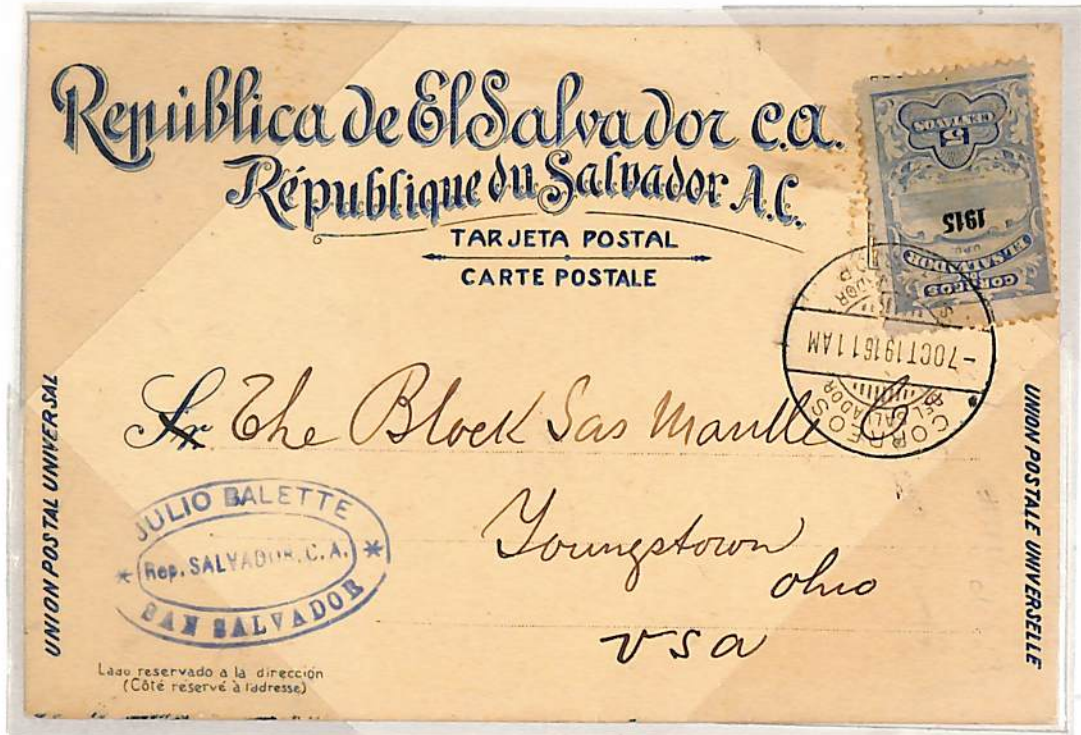 República de El Salvador C.A.
République du Salvador A.C.
TARJETA POSTAL
CARTE POSTALE
5
CENTAVOS
1915
CORREOS
EL SALVADOR
-7 OCT 1916 11 AM
CORREOS
EL SALVADOR
UNION POSTAL UNIVERSAL
UNION POSTALE UNIVERSELLE
Sr. The Block Gas Mantle
Youngstown
Ohio
USA
JULIO BALETTE
* Rep. SALVADOR, C.A. *
SAN SALVADOR
Lado reservado a la dirección
(Côté reservé à l'adresse)